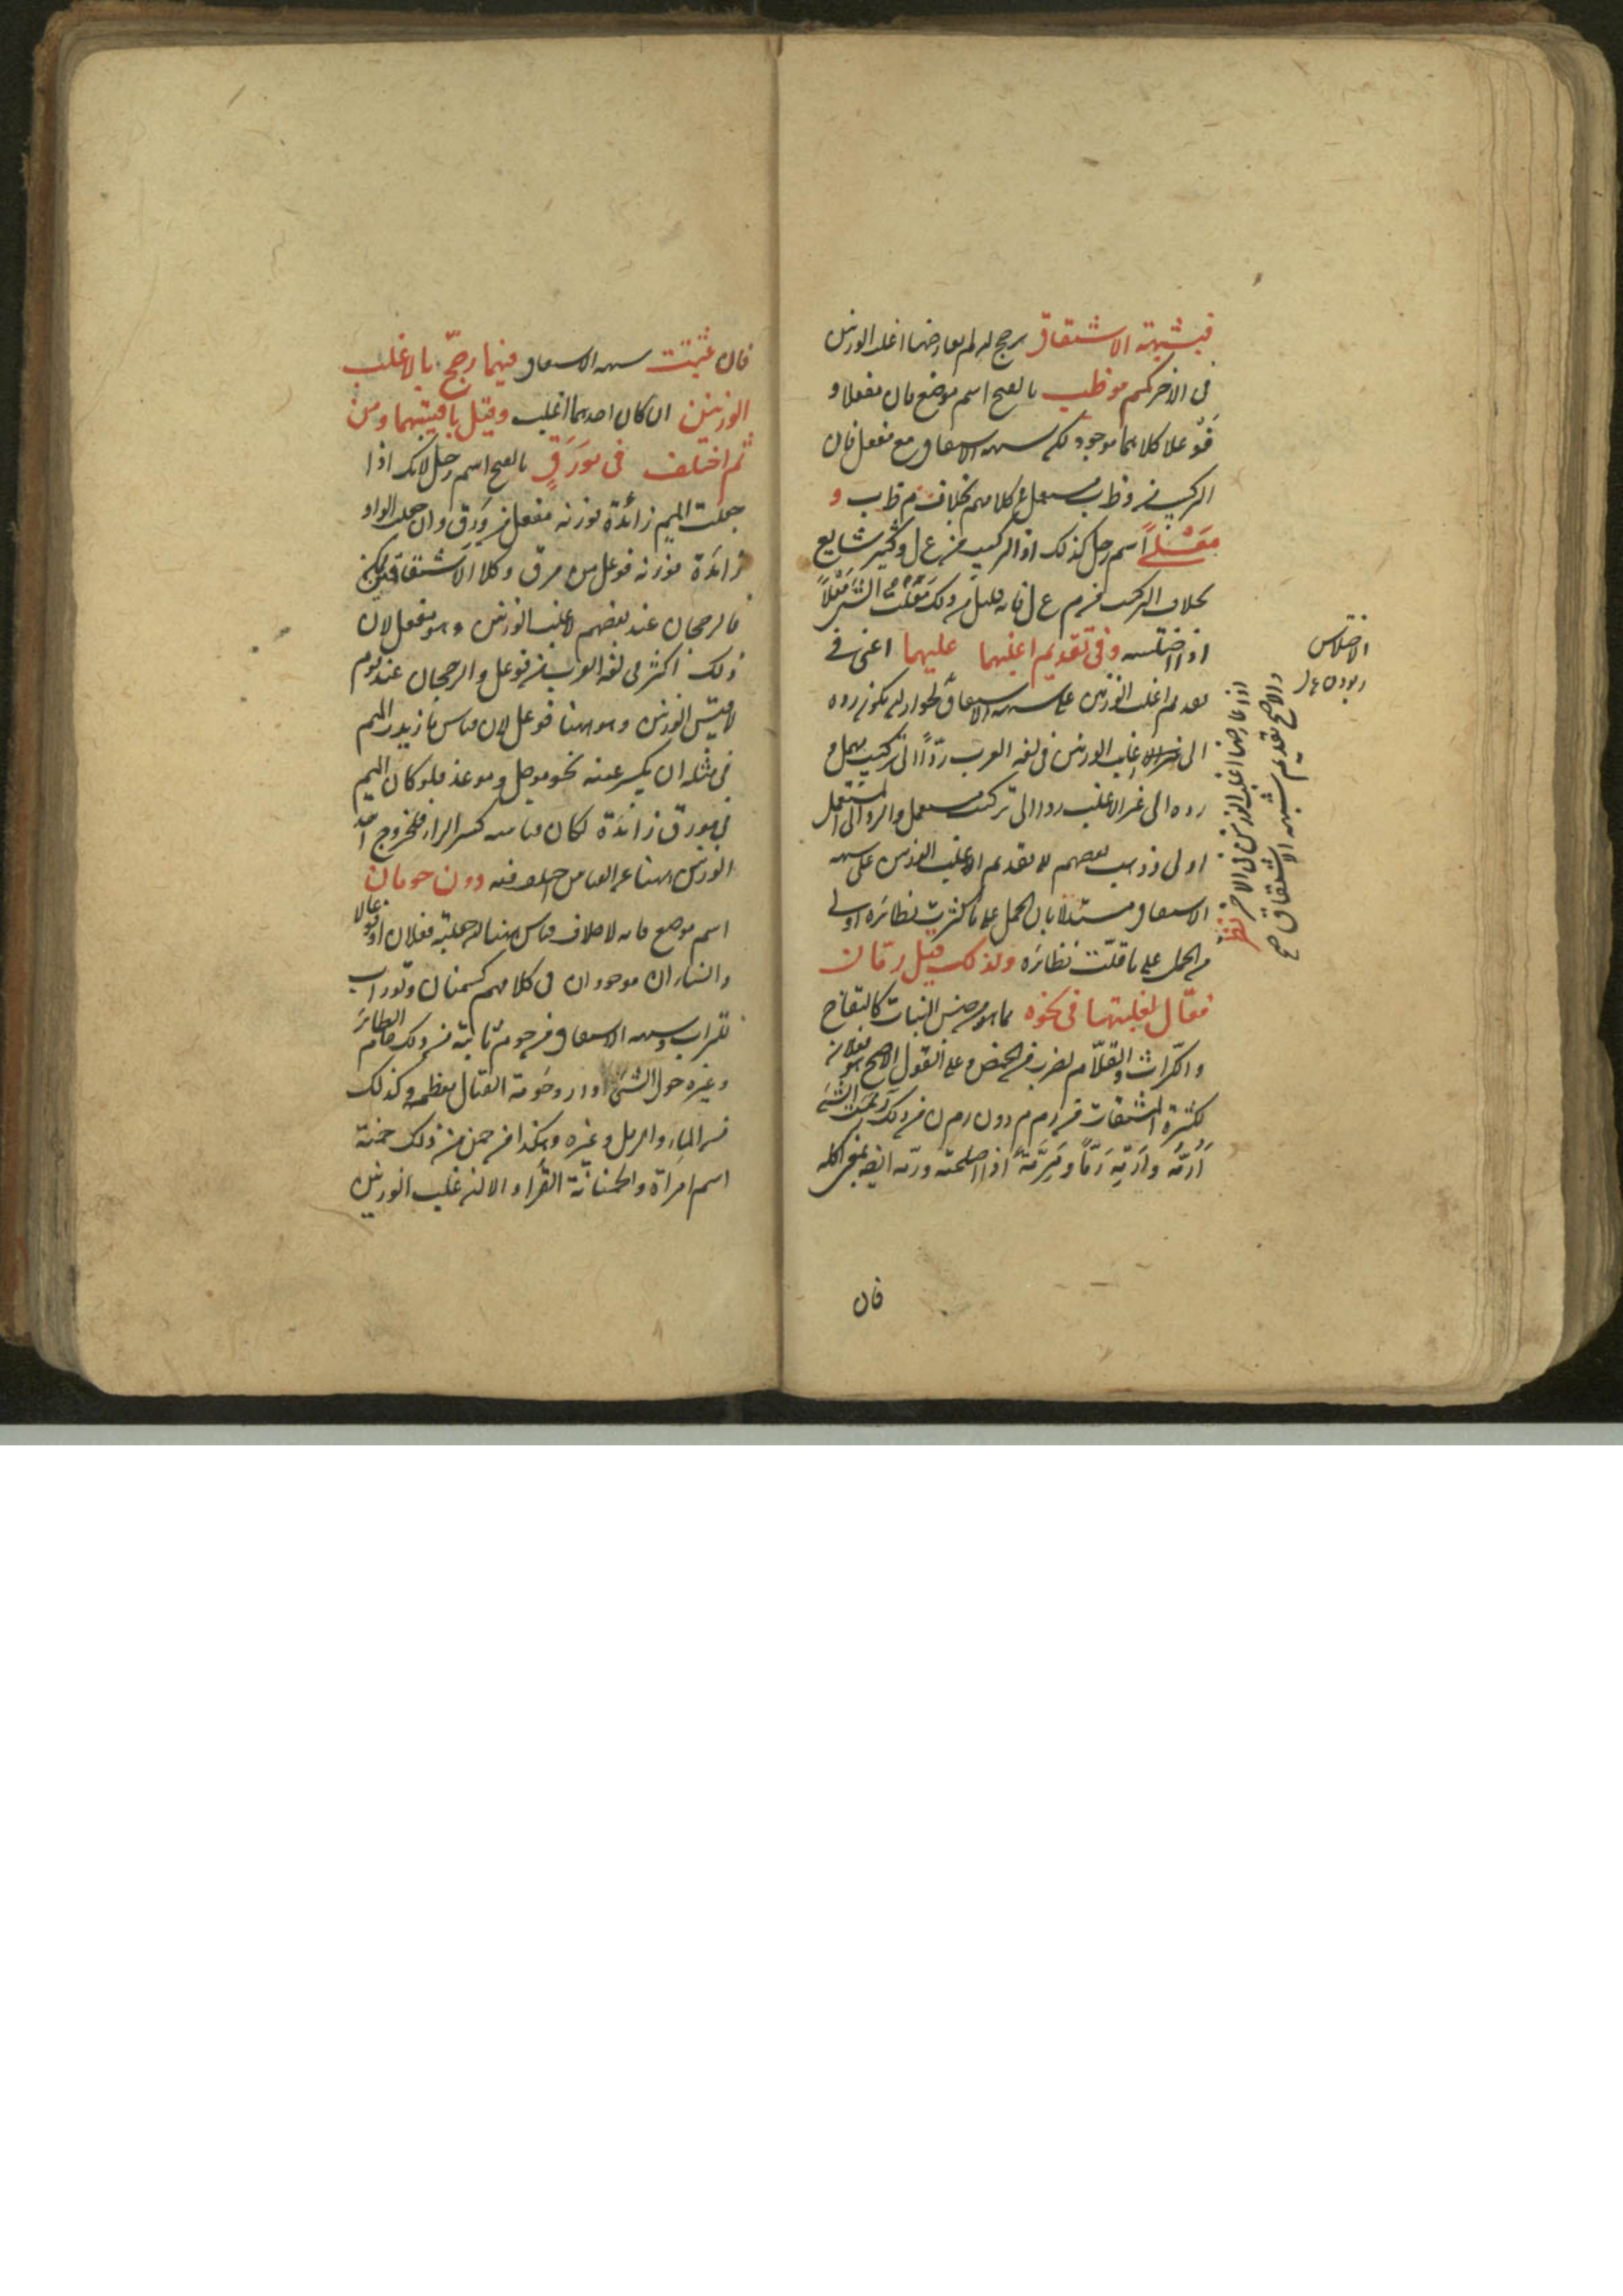 فبشبهة الاشتقاق يرجح ان لم يعارضها اغلب الوزنين
فى الاخر كميم موظب بالفتح اسم موضع فان مفعلا و
فوعلا كلاهما موجود لكن شبهة الاشتقاق مع مفعل فان
التركيب من وظب مستعمل فى كلامهم بخلاف م ظ ب و
معلى اسم رجل كذلك اذ التركيب من ع ل و كثير شايع
بخلاف التركيب من م ع ل فانه قليل من ذلك معلت الشئ معلا
اذا اختلسه وفى تقديم اغلبهما عليهما اعنى فى
تقديم اغلب الوزنين على شبهة الاشتقاق نظر لجواز ان يكون رده
الى اغلب الوزنين فى لغة العرب ردا الى تركيب مهمل و
رده الى غير الاغلب ردا الى تركيب مستعمل والرد الى المستعمل
اولى وذهب بعضهم الى تقديم الاغلب الوزنين على شبهة
الاشتقاق مستدلا بان الحمل على ما كثرت نظائره اولى
من الحمل على ما قلت نظائره ولذلك قيل رمان
فعال لغلبتها فى نحوه مما هو من جنس النبات كالتفاح
والكراث والقلام لضرب من الحمض وعلى القول الاصح هو فعلان
لكثرة المشتقات من رمم دون رمن من ذلك رممت الشئ
ارمه وارمه رما ومرمة اذا اصلحته ورمه ايضا بمعنى اكله
فان
الاختلاس
ربودن
اذا عارضها اغلب الوزنين فى الاخر
والاصح تقديم شبهة الاشتقاق صح
فان ثبتت شبهة الاشتقاق فيهما رجح بالاغلب
الوزنين ان كان احدهما اغلب وقيل باقيسهما ومن
ثم اختلف فى مورق بالفتح اسم رجل لانك اذا
جعلت الميم زائدة فوزنه مفعل من ورق وان جعلت الواو
زائدة فوزنه فوعل من مرق وكلا الاشتقاقين ممكن
فالرجحان عند بعضهم لاغلب الوزنين وهو مفعل لان
ذلك اكثر فى لغة العرب من فوعل والرجحان عند قوم
لاقيس الوزنين وهو ههنا فوعل لان قياس ما زيد الميم
فى مثله ان يكسر عينه نحو موصل وموعد فلو كان الميم
فى مورق زائدة لكان قياسه كسر الراء فلخروج احد
الوزنين ههنا عن القياس اختلف فيه دون حومان
اسم موضع فانه لا خلاف قياس ههنا ان جعلته فعلان او فوعالا
والبناءان موجودان فى كلامهم كسمنان وتوراب
للتراب وشبهة الاشتقاق من حوم ثابتة من ذلك حام الطائر
وغيره حول الشئ اى دار وحومة القتال معظمه وكذلك
من الماء والرمل وغيره وهكذا من حمن من ذلك حمنة
اسم امراة والحمنانة القراد الا ان اغلب الوزنين